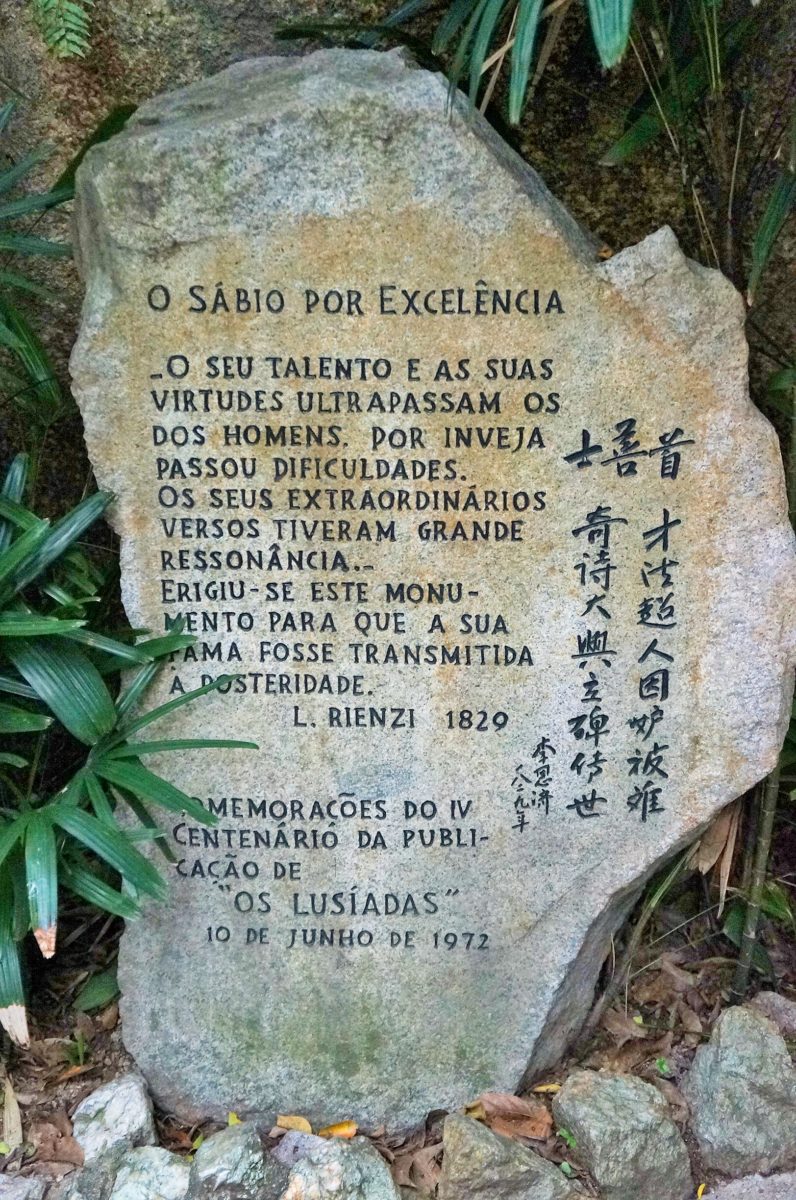 O SÁBIO POR EXCELÊNCIA
-O SEU TALENTO E AS SUAS
VIRTUDES ULTRAPASSAM OS
DOS HOMENS. POR INVEJA
PASSOU DIFICULDADES.
OS SEUS EXTRAORDINÁRIOS
VERSOS TIVERAM GRANDE
RESSONÂNCIA.-
ERIGIU-SE ESTE MONU-
MENTO PARA QUE A SUA
FAMA FOSSE TRANSMITIDA
A POSTERIDADE.
L. RIENZI 1829
COMEMORAÇÕES DO IV
CENTENÁRIO DA PUBLI-
CAÇÃO DE
"OS LUSÍADAS"
10 DE JUNHO DE 1972
首善士
才德超人因妒被難
奇詩大興立碑傳世
李恩濟
八二九年